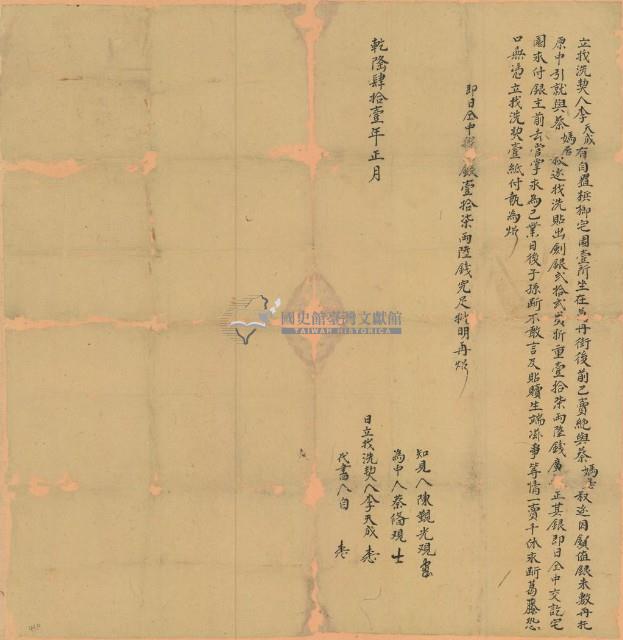 立找洗契人李天成有自置檳榔宅園壹所坐在萬丹街後前已賣絶與蔡媽居叔边因價值銀未敷再托
原中引就與蔡媽居叔边找洗貼出劍銀貳拾貳員折重壹拾柒両陸錢廣 正其銀即日仝中交訖宅
園求付銀主前去管掌永為己業日後子孫断不敢言及貼贖生端滋事等情一賣千休永断葛藤恐
口無憑立找洗契壹紙付執為炤
即日仝中 銀壹拾柒両陸錢完足批明再炤
乾隆肆拾壹年正月
知見人陳觀光現
為中人蔡俻現
日立找洗契人李天成
代書人自
國史館臺灣文獻館
TAIWAN HISTORICA